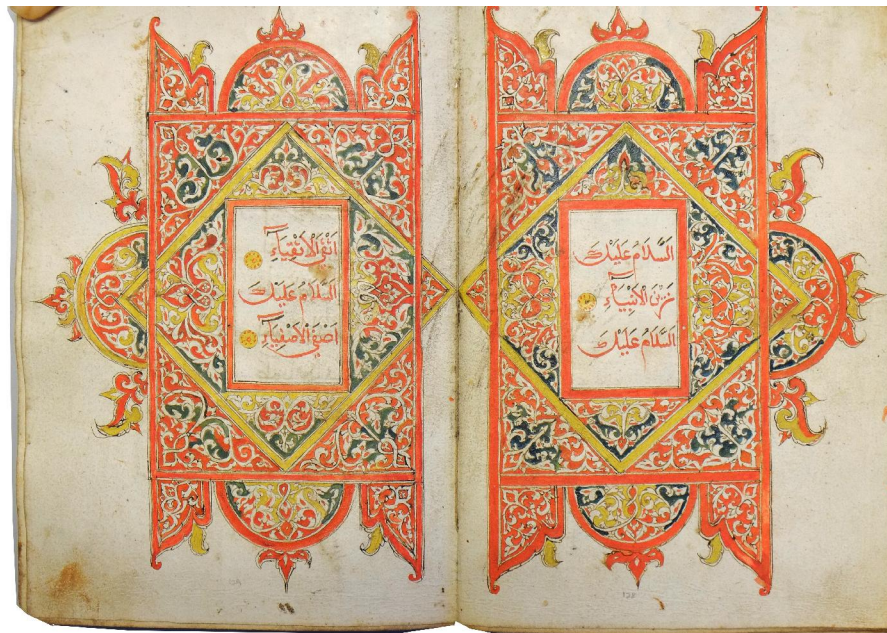 اَلسَّلَامُ عَلَيْكَ
زَيْنَ الْاَنْبِيَآءِ
اَلسَّلَامُ عَلَيْكَ
اَتْقَى الْاَتْقِيَآءِ
اَلسَّلَامُ عَلَيْكَ
اَصْفَى الْاَصْفِيَآءِ